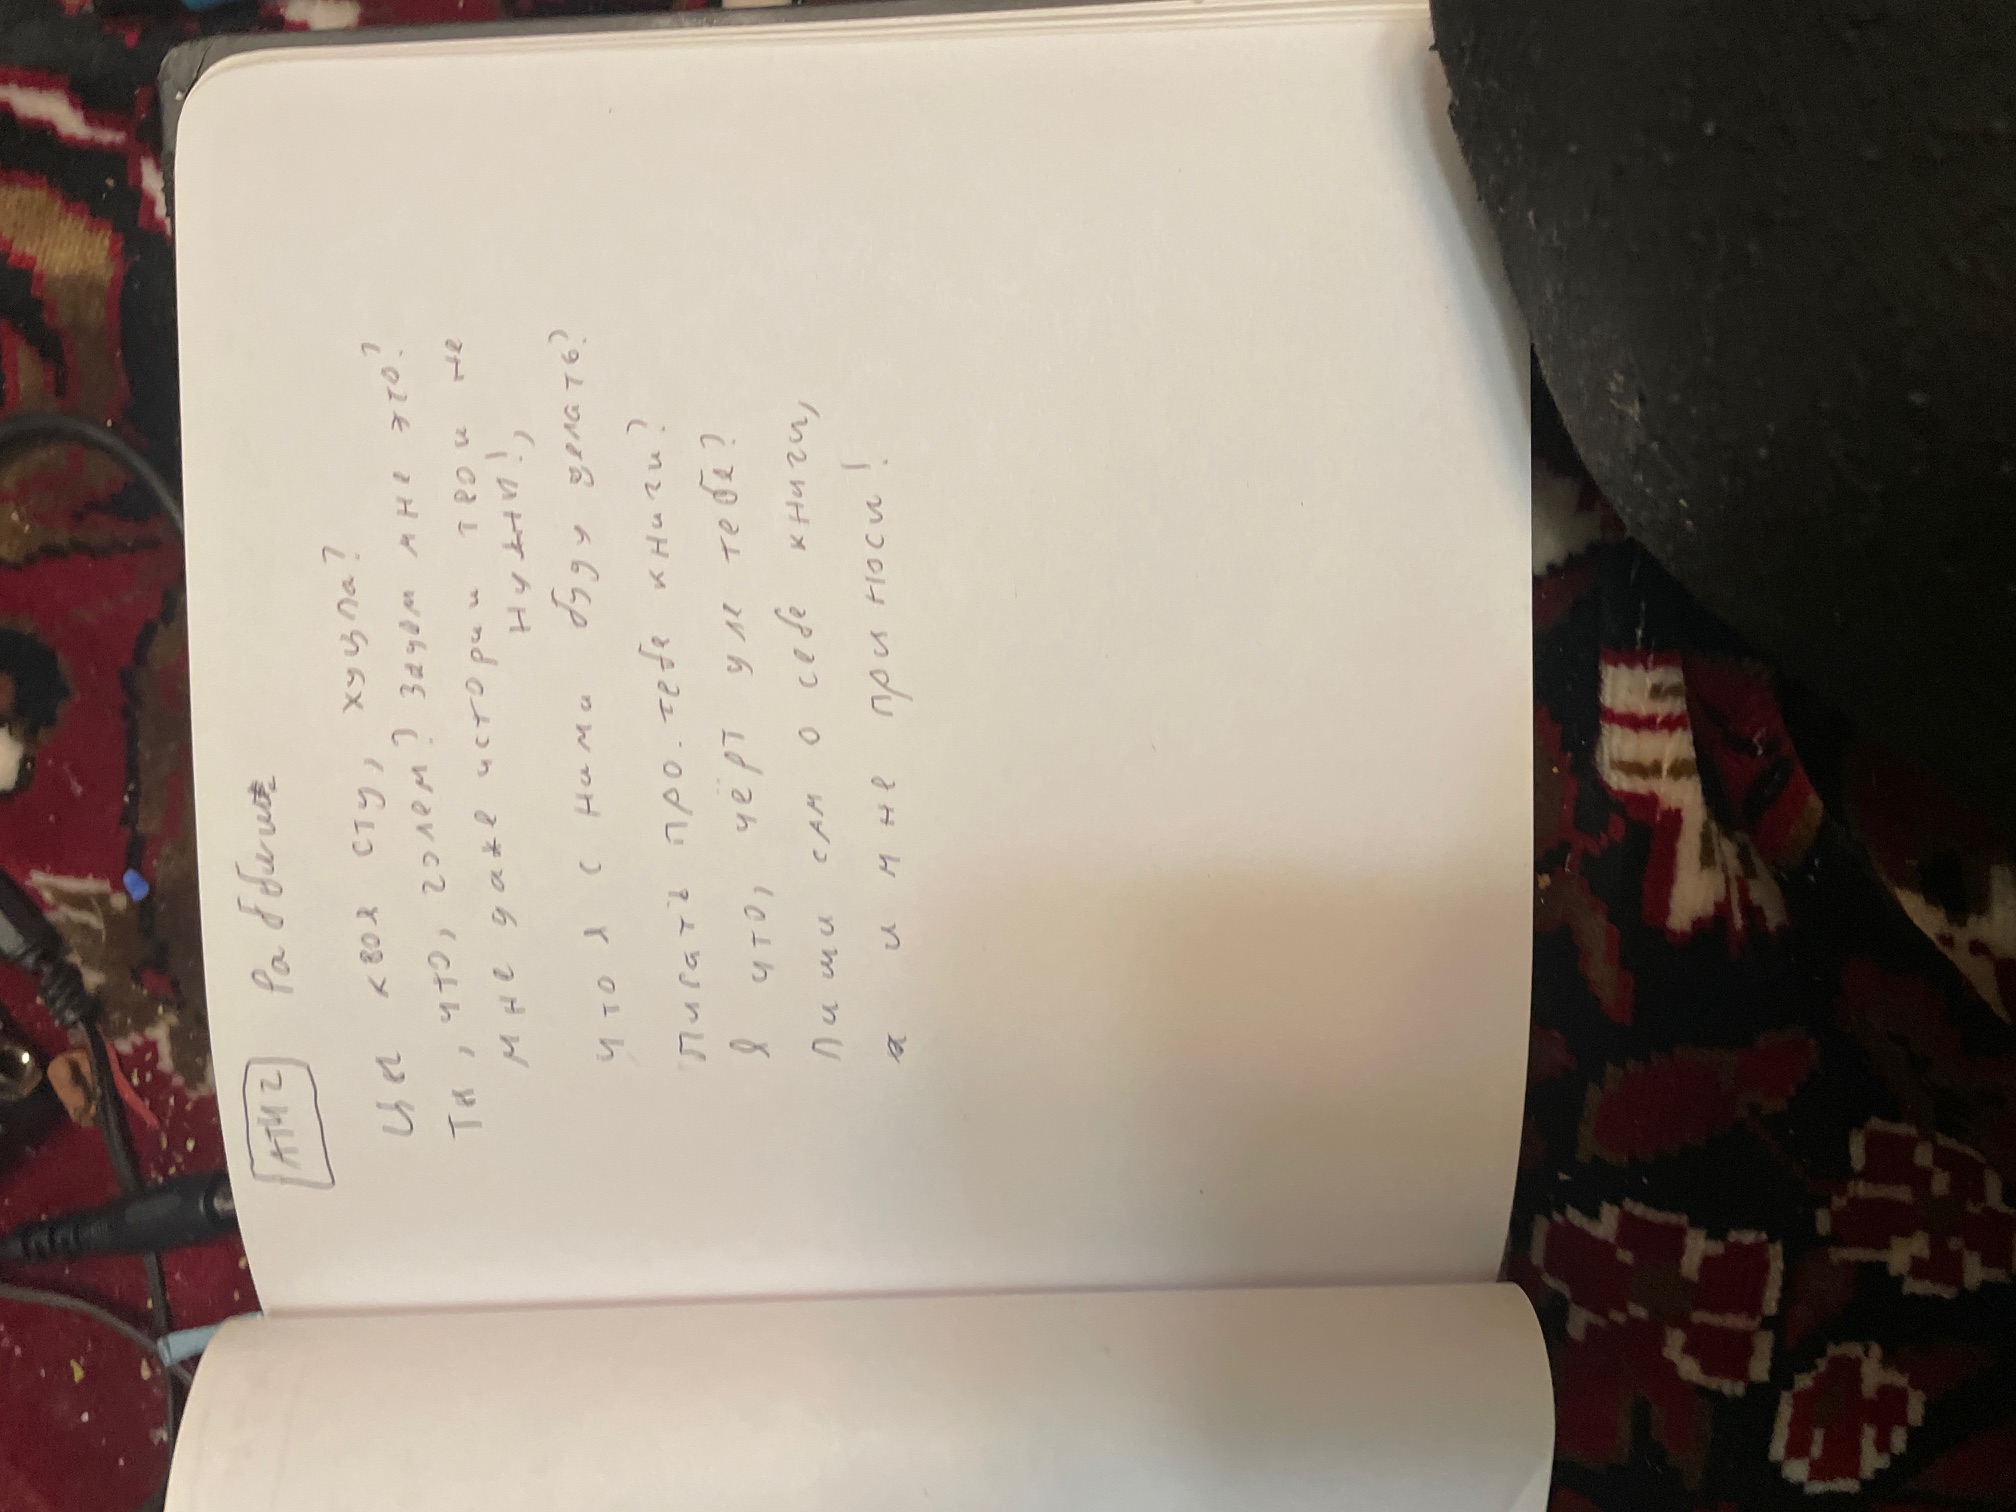 АТЧ 2 Раббиш
Цы квоя сту, хуцпа?
Ты, что, голем? Зачем мне это?
Мне даже истории твои не
нужны!,
что я с ними буду делать?
Писать про тебя книги?
Я что, чёрт уле тебе?
Пиши сам о себе книги,
и мне приноси!